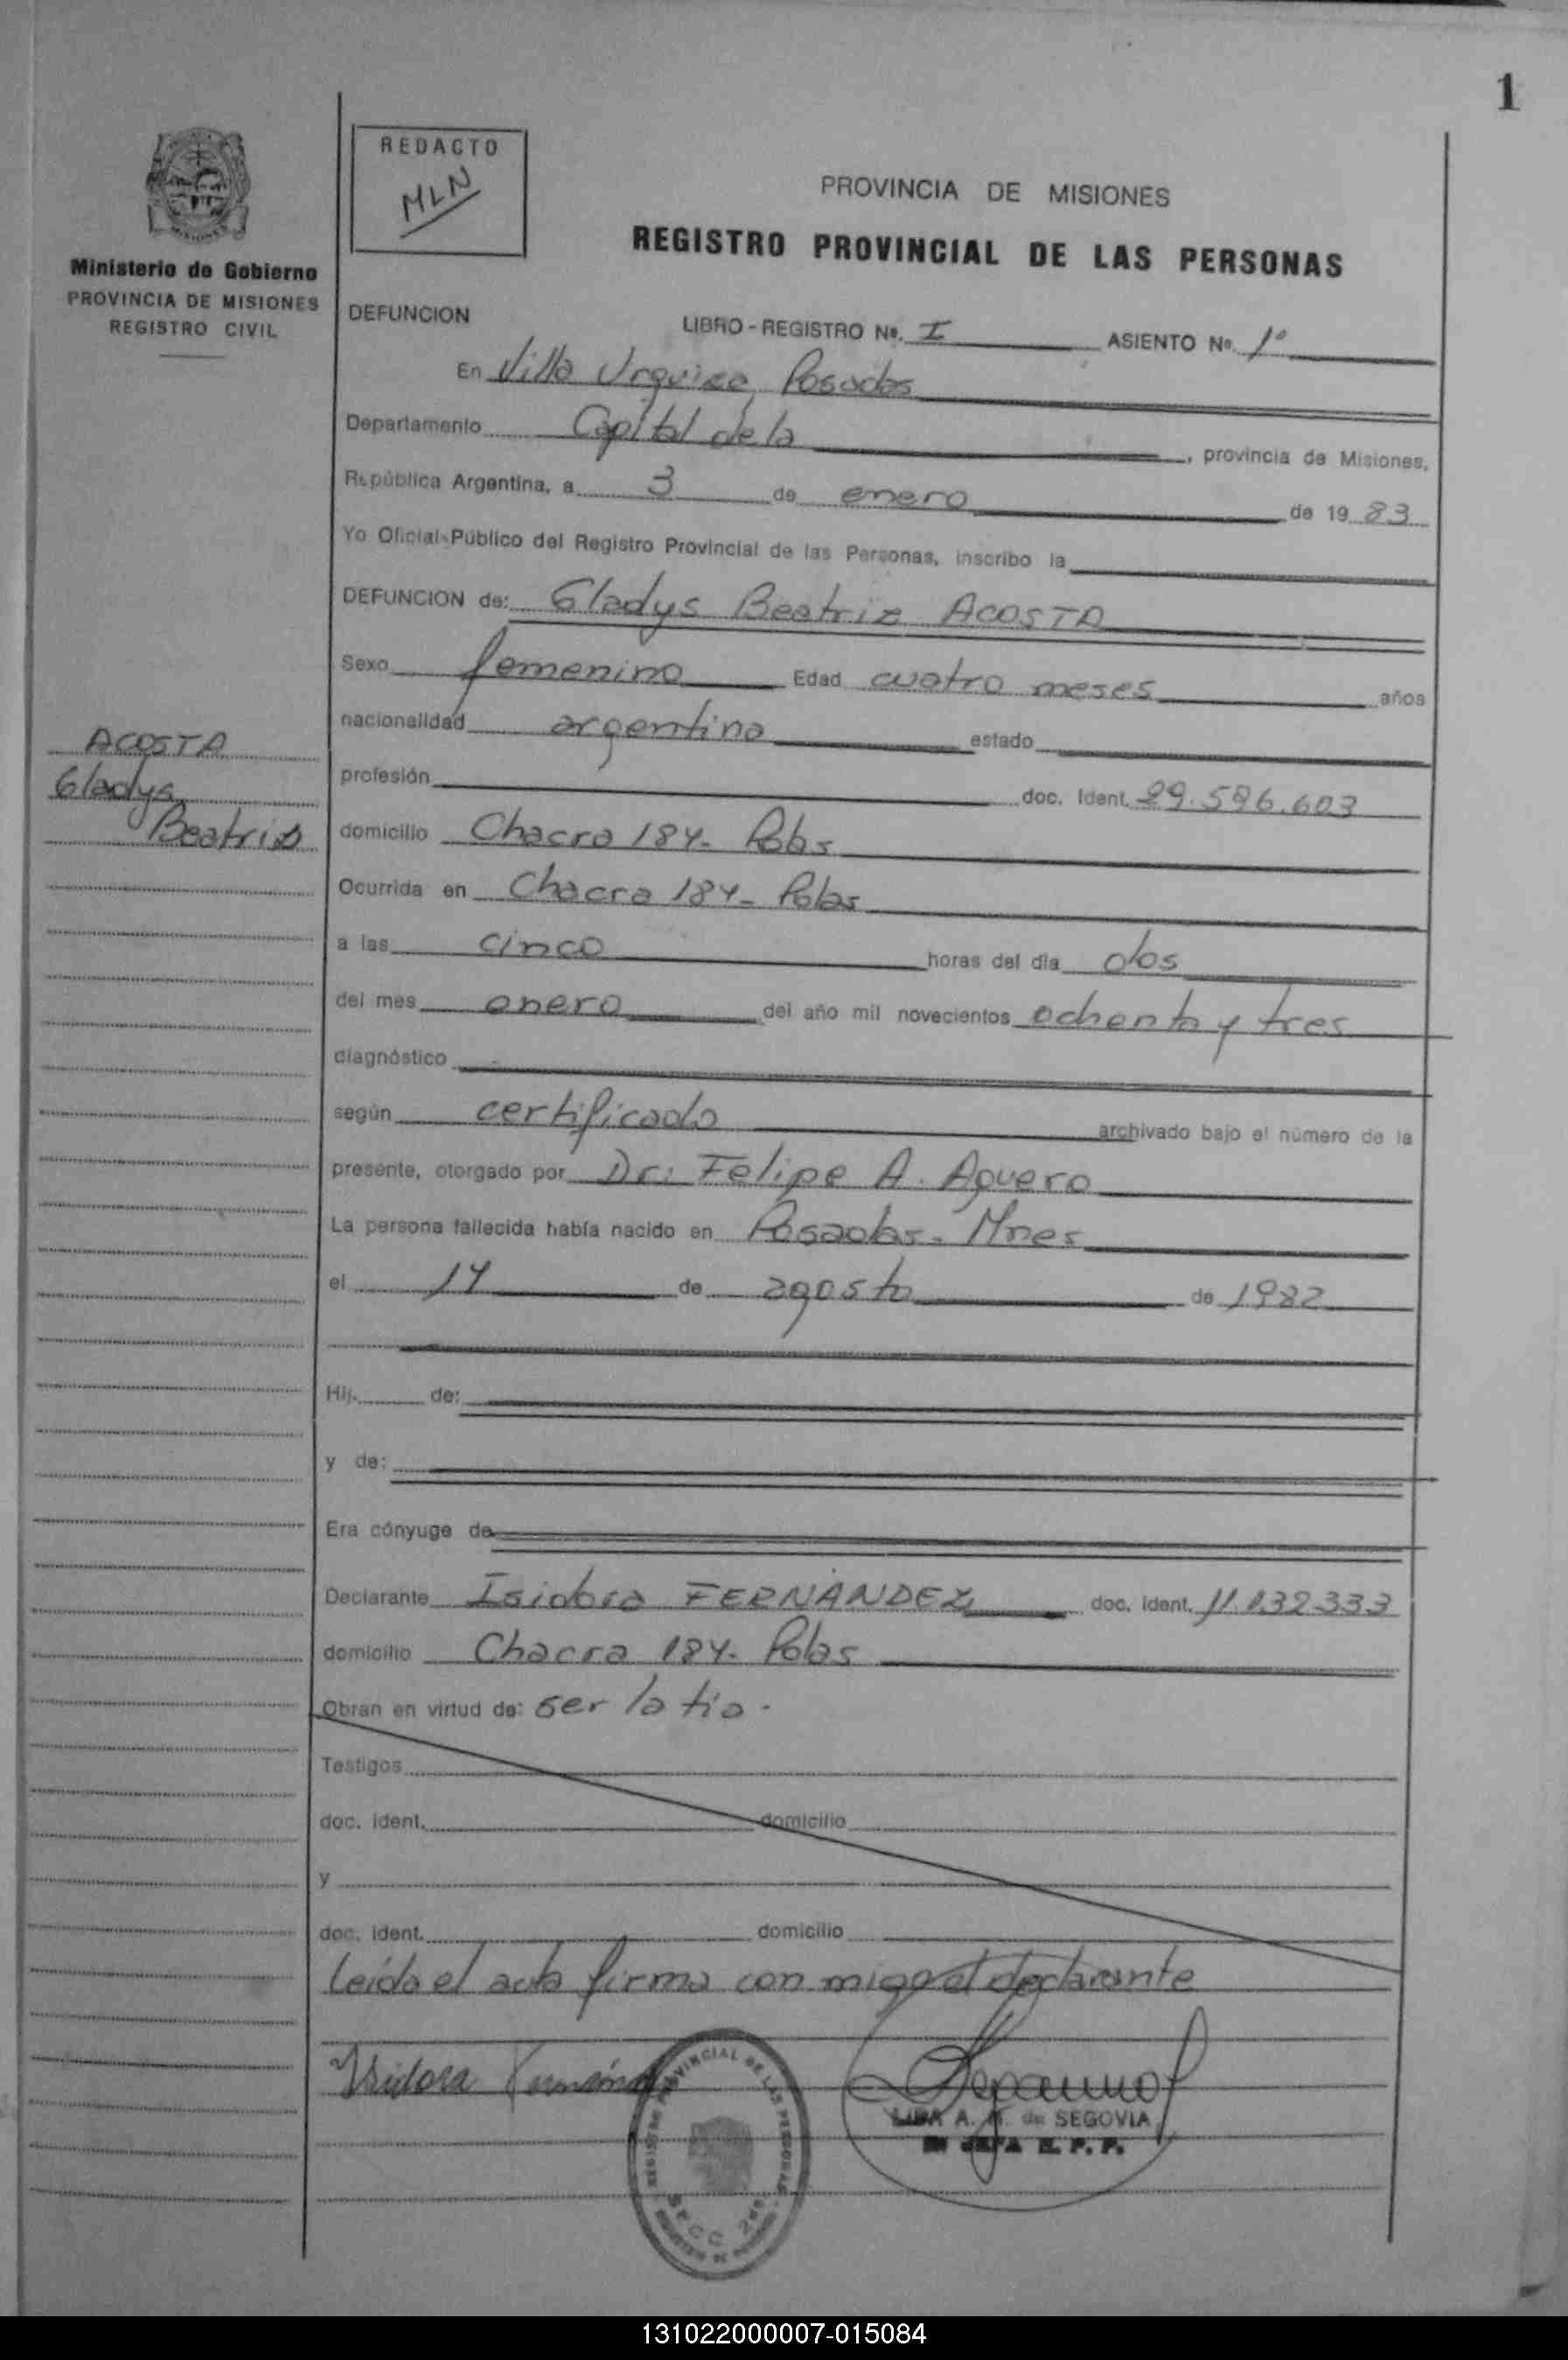 1
REDACTO
MLN
PROVINCIA DE MISIONES
REGISTRO PROVINCIAL DE LAS PERSONAS
Ministerio de Gobierno
PROVINCIA DE MISIONES
REGISTRO CIVIL
DEFUNCION LIBRO - REGISTRO Nº. I ASIENTO Nº 1º
En Villa Urquiza, Posadas
Departamento Capital de la, provincia de Misiones,
República Argentina, a 3 de enero de 1983
Yo Oficial Público del Registro Provincial de las Personas, inscribo la
DEFUNCION de: Gladys Beatriz ACOSTA
Sexo femenino Edad cuatro meses años
nacionalidad argentina estado
profesión doc. Ident. 29.596.603
domicilio Chacra 184- Pdas
Ocurrida en Chacra 184- Pdas
a las cinco horas del día dos
del mes enero del año mil novecientos ochenta y tres
diagnóstico
según certificado archivado bajo el número de la
presente, otorgado por Dr: Felipe A. Aguero
La persona fallecida había nacido en Posadas- Mnes
el 14 de agosto de 1982
Hij. de:
y de:
Era cónyuge de
Declarante Isidora FERNÁNDEZ doc. ident. 11.132333
domicilio Chacra 184- Pdas
Obran en virtud de: ser la tía.
Testigos
doc. ident. domicilio
y
doc. ident. domicilio
Leída el acta firma con migo el declarante
Isidora
LIDA A. de SEGOVIA
REGISTRO PROVINCIAL DE LAS PERSONAS
SECC. 2da
ACOSTA
Gladys
Beatriz
131022000007-015084